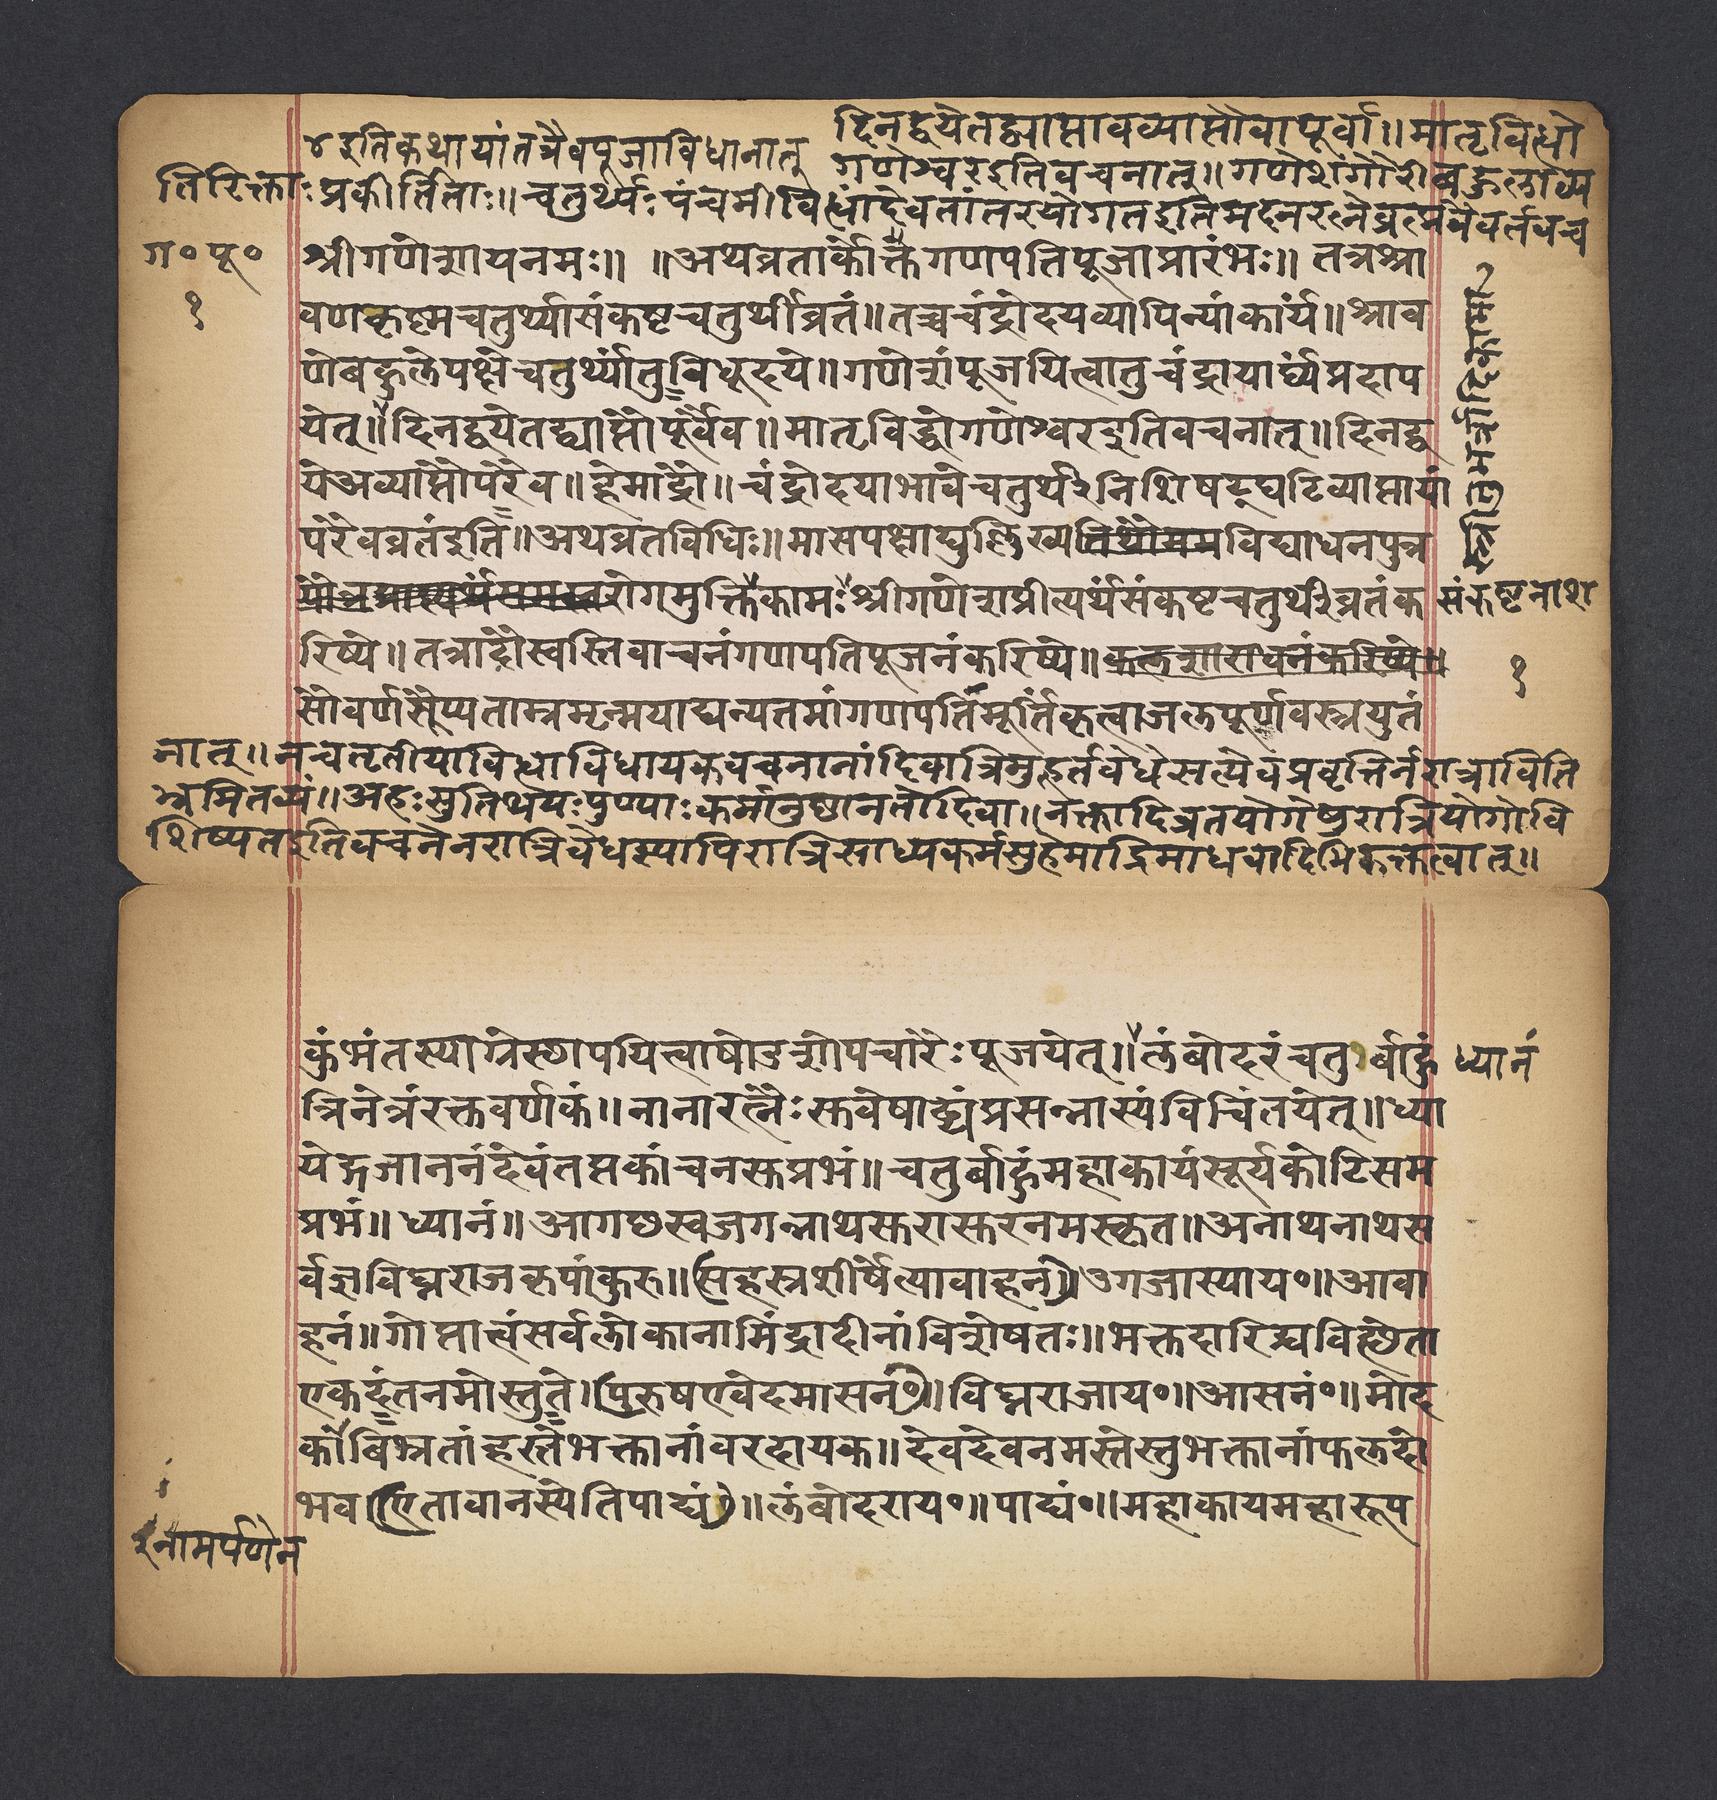 दिनद्वयेतद्व्याप्तावव्याप्तौवापूर्वा॥मातृवित्धो
४इतिकथायांतत्रैवपूजाविधानात्
गणेश्वरइतिवचनात्॥गणेशगौरीबहुलाव्य
तिरिक्ताःप्रकीर्तिताः॥चतुर्थ्यःपंचमीवित्धांदेवतांतरयोगतइतिमदनरत्नेब्रह्मवैवर्तवच
ग॰पू॰
१
श्रीगणेशायनमः॥ ॥अथव्रतार्कोक्तगणपतिपूजाप्रारंभः॥ तत्रश्रा
वणकृष्मचतुर्थ्यासंकष्टचतुर्थीव्रतं॥तच्चचंद्रोदयव्यापिन्यांकार्यं॥श्राव
णेबहुलेपक्षेचतुर्थ्यांतुविधूदये॥गणेशंपूजयित्वातुचंद्रायार्घ्यंप्रदाप
येत्॥दिनद्वयेतद्व्याप्तौपूर्वैव॥मातृविद्धोगणेश्वरइतिवचनात्॥दिनद्व
येअव्याप्तौपरैव॥हेमाद्रौ॥चंद्रोदयाभावेचतुर्थीनिशिषट्घटिव्याप्तायां
परैवव्रतंइति॥अथव्रतविधिः॥मासपक्षाद्युल्लिख्यतिथौममविद्याधनपुत्र
पौत्रप्राप्त्यर्थंसमस्तरोगमुक्तिकामःश्रीगणेशप्रीत्यर्थंसंकष्टचतुर्थीव्रतंक
संकष्टनाश
रिष्ये॥तत्रादौस्वस्तिवाचनंगणपतिपूजनंकरिष्ये॥कलशाराधनंकरिष्ये॥
१
सौवर्णरूप्यताम्रमृन्मयाद्यन्यतमांगणपतिमूर्तिंकृत्वाजलपूर्णवस्त्रयुतं
नात्॥नचतृतीयावित्धाविधायकवचनानांदिवात्रिमुहूर्तवेधेसत्येवप्रवृत्तिर्नरात्राविति
भ्रमितव्यं॥अहःसुतिथयःपुण्याःकर्मानुष्ठानतोदिवा॥नक्तादिव्रतयोगेषुरात्रियोगोवि
शिष्यतइतिवचनेनरात्रिवेधस्यापिरात्रिसाध्यकर्मसुहेमाद्रिमाधवादिभिरुक्तत्वात्॥
कुंभंतस्याग्रेस्छापयित्वाषोडशोपचारैःपूजयेत्॥लंबोदरंचतुर्बाहुं
ध्यानं
त्रिनेत्रंरक्तवर्णकं॥नानारत्नैःसुवेषाढ्यंप्रसन्नास्यंविचिंतयेत्॥ध्या
येद्गजाननंदेवंतप्तकांचनसुप्रभं॥चतुर्बाहुंमहाकायंसूर्यकोटिसम
प्रभं॥ध्यानं॥आगछस्वजगन्नाथसुरासुरनमस्कृत॥अनाथनाथस
र्वज्ञविघ्नराजकृपांकुरु॥(सहस्रशीर्षेत्यावाहनं)ॐगजास्याय॰॥आवा
हनं॥गोप्तात्वंसर्वलोकानामिंद्रादीनांविशेषतः॥भक्तदारिद्र्यविछेत्ता
एकदंतनमोस्तुते।(पुरुषएवेदमासनं॰)॥विघ्नराजाय॰॥आसनं॰॥मोद
कान्बिभ्रतांहस्तेभक्तानांवरदायक॥देवदेवनमस्तेस्तुभक्तानांफलदो
भव(एतावानस्येतिपाद्यं)॥लंबोदराय॰॥पाद्यं॰॥महाकायमहारूप
नामर्पणेन